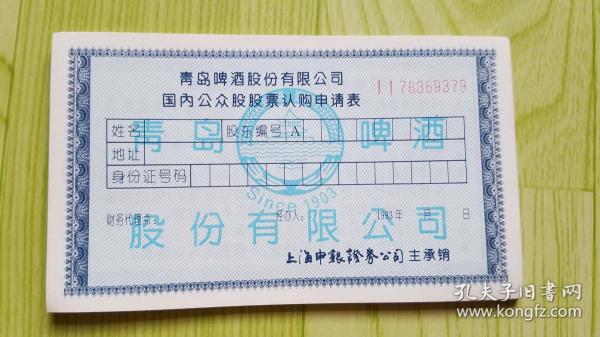 青岛啤酒股份有限公司
国内公众股股票认购申请表
1176369379
姓名
股东编号 A
地址
身份证号码
青岛 啤酒
Since 1903
财务代理点:
经办人:
1993年 月 日
股份有限公司
上海申银證券公司 主承销
孔夫子旧书网
www.kongfz.com